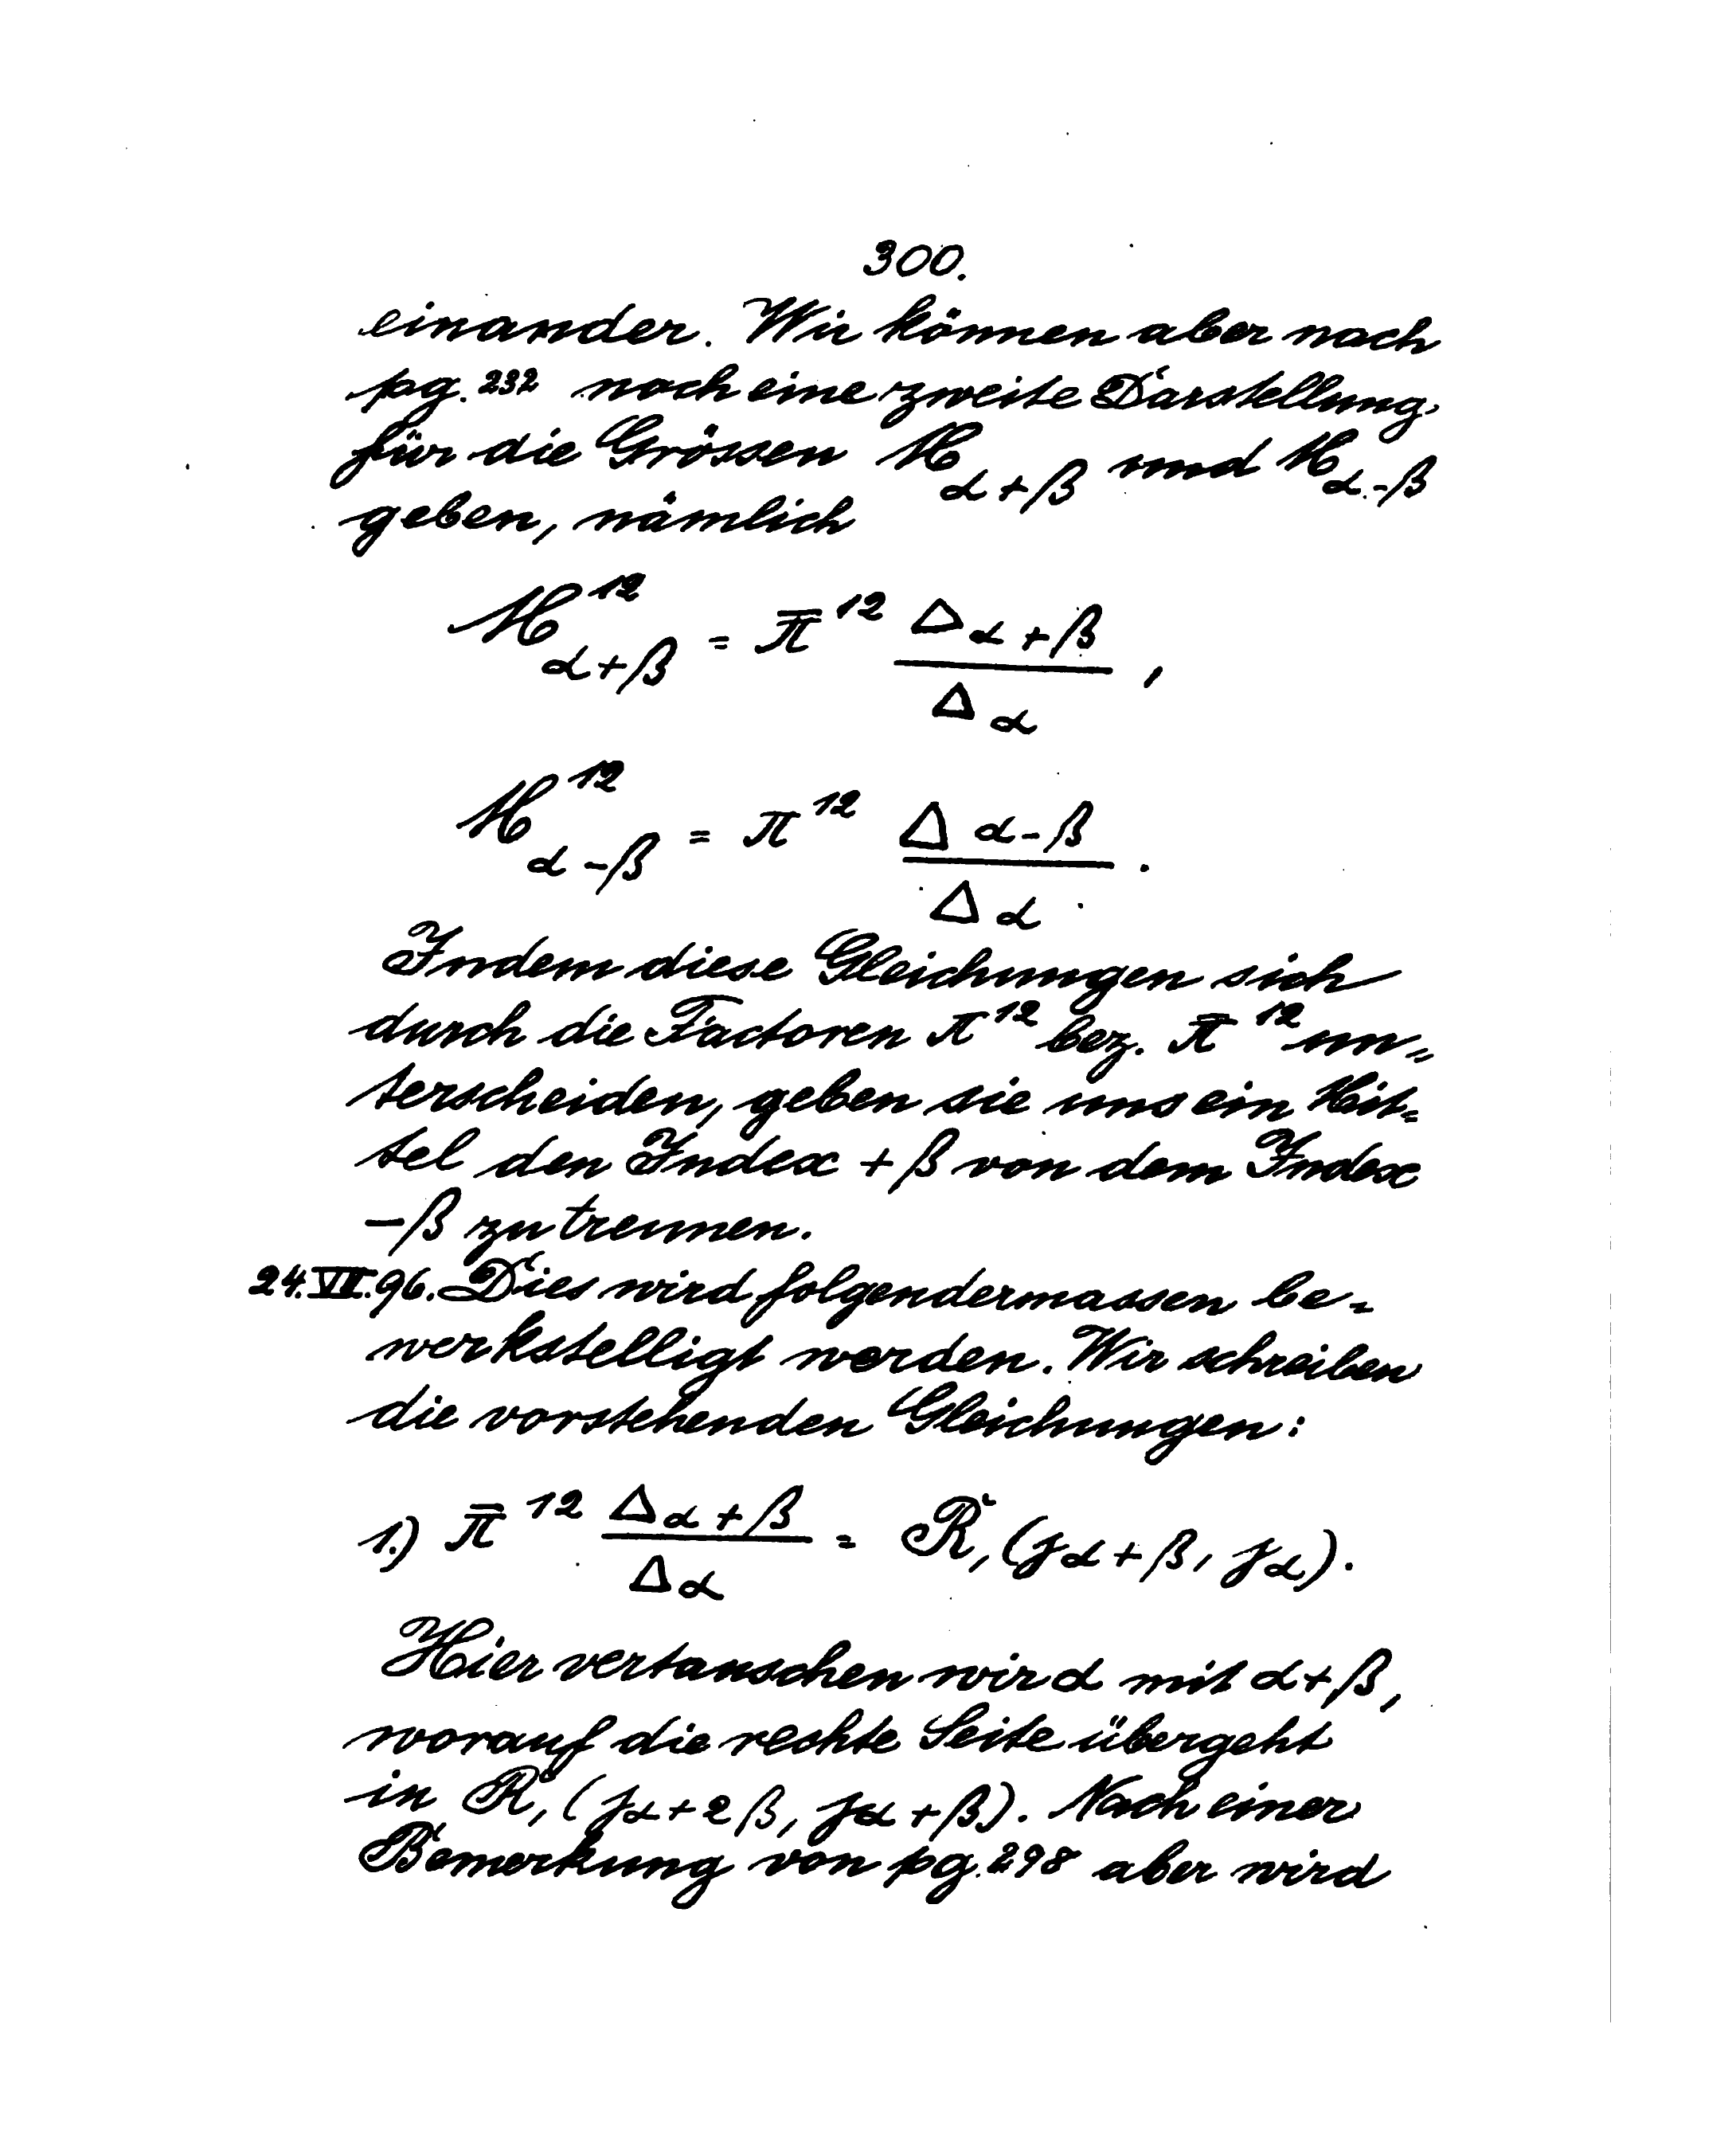 300.
einander. Wir können aber nach
pg. 232 noch eine zweite Darstellung
für die Grössen M_{α+β} und M_{α-β}
geben, nämlich
M^{12}_{α+β} = \bar{π}^{12} \frac{Δ_{α+β}}{Δ_α},
M^{12}_{α-β} = π^{12} \frac{Δ_{α-β}}{Δ_α}.
Indem diese Gleichungen sich
durch die Factoren π^{12} bez. \bar{π}^{12} un„
terscheiden, geben sie uns ein Mit=
tel den Index +β von dem Index
-β zu trennen.
24.VII.96. Dies wird folgendermassen be=
werkstelligt werden. Wir schreiben
die vorstehenden Gleichungen:
1.) \bar{π}^{12} \frac{Δ_{α+β}}{Δ_α} = R_1(j_{α+β}, j_α).
Hier vertauschen wir α mit α+β,
worauf die rechte Seite übergeht
in R_1(j_{α+2β}, j_{α+β}). Nach einer
Bemerkung von pg. 298 aber wird